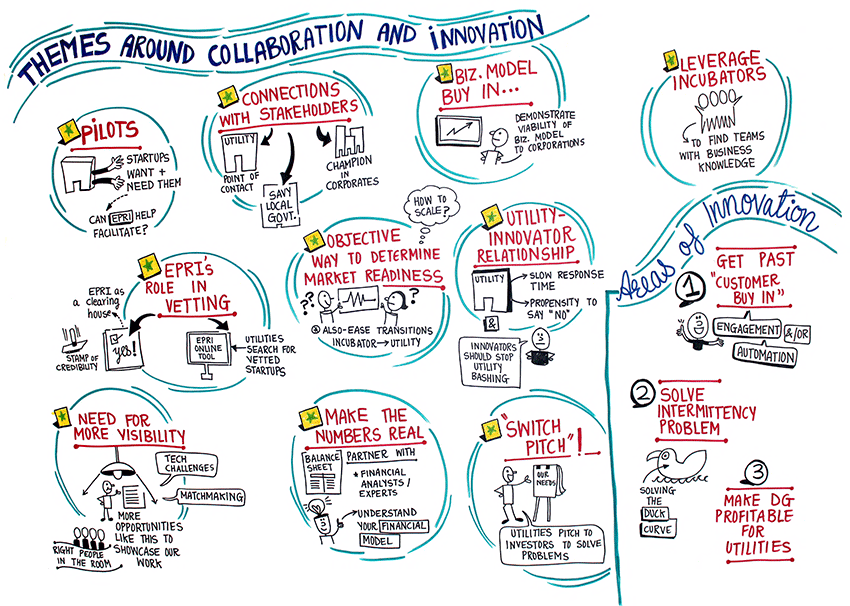 THEMES AROUND COLLABORATION AND INNOVATION
PILOTS
STARTUPS
WANT +
NEED THEM
CAN EPRI HELP
FACILITATE?
CONNECTIONS
WITH STAKEHOLDERS
UTILITY
POINT OF
CONTACT
SAVY
LOCAL
GOVT.
CHAMPION
IN
CORPORATES
BIZ. MODEL
BUY IN...
DEMONSTRATE
VIABILITY OF
BIZ. MODEL
TO CORPORATIONS
LEVERAGE
INCUBATORS
TO FIND TEAMS
WITH BUSINESS
KNOWLEDGE
EPRI'S
ROLE IN
VETTING
EPRI AS
A CLEARING
HOUSE
STAMP OF
CREDIBILITY
yes!
EPRI
ONLINE
TOOL
UTILITIES
SEARCH FOR
VETTED
STARTUPS
HOW TO
SCALE?
OBJECTIVE
WAY TO DETERMINE
MARKET READINESS
??
??
ALSO-EASE TRANSITIONS
INCUBATOR → UTILITY
UTILITY-
INNOVATOR
RELATIONSHIP
UTILITY
SLOW RESPONSE
TIME
PROPENSITY TO
SAY "NO"
&
INNOVATORS
SHOULD STOP
UTILITY
BASHING
NEED FOR
MORE VISIBILITY
TECH
CHALLENGES
MATCHMAKING
MORE
OPPORTUNITIES
LIKE THIS TO
SHOWCASE OUR
WORK
RIGHT PEOPLE
IN THE ROOM
MAKE THE
NUMBERS REAL
BALANCE
SHEET
PARTNER WITH
* FINANCIAL
ANALYSTS /
EXPERTS
UNDERSTAND
YOUR FINANCIAL
MODEL
"SWITCH
PITCH"!
OUR
NEEDS
UTILITIES PITCH TO
INVESTORS TO SOLVE
PROBLEMS
Areas of Innovation
1
GET PAST
"CUSTOMER
BUY IN"
ENGAGEMENT &/OR
AUTOMATION
2
SOLVE
INTERMITTENCY
PROBLEM
SOLVING
THE
DUCK
CURVE
3
MAKE DG
PROFITABLE
FOR
UTILITIES